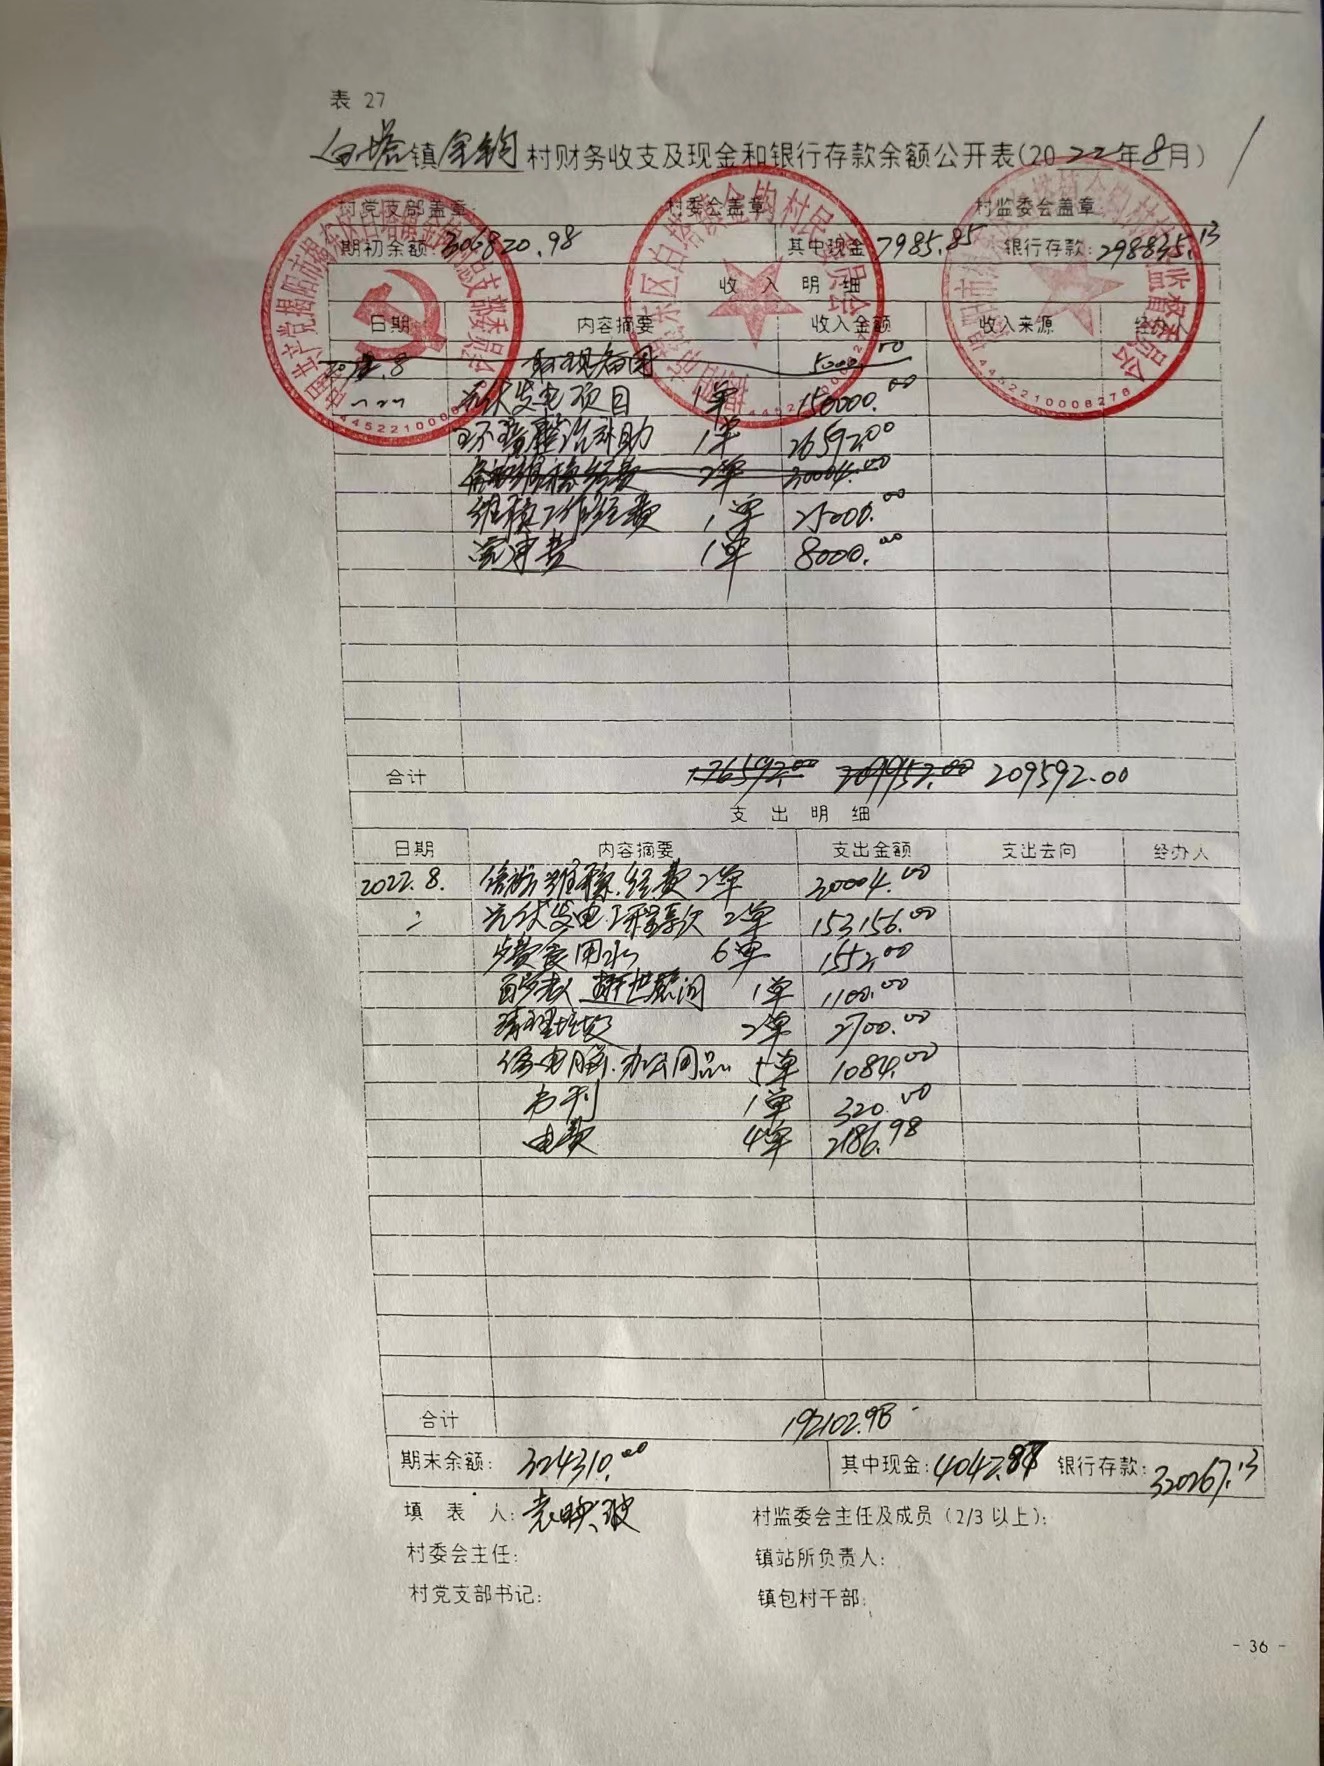 表 27
白塔镇金钩村财务收支及现金和银行存款余额公开表(2022年8月)
村党支部盖章: 村委会盖章 村监委会盖章
期初余额: 306820.98 其中现金 7985.85 银行存款: 298835.13
收 入 明 细
日期 内容摘要 收入金额 收入来源 经办人
取现备用 5000.00
光伏发电项目 1单 150000.00
环境整治补助 1单 26592.00
2单 30004.00
维稳工作经费 1单 25000.00
1单 8000.00
合计 176592.00 209952.00 209592.00
支 出 明 细
日期 内容摘要 支出金额 支出去向 经办人
2022.8. 信访维稳经费 2单 30004.00
光伏发电工程款 2单 153156.00
用水 6单 1552.00
慰问 1单 1100.00
清理垃圾 2单 2700.00
电脑.办公用品 5单 1084.00
1单 320.00
电费 4单 2186.98
合计 192102.98
期末余额: 324310.00 其中现金: 4042.87 银行存款: 320267.13
填 表 人: 袁映波 村监委会主任及成员(2/3以上):
村委会主任: 镇站所负责人:
村党支部书记: 镇包村干部:
- 36 -